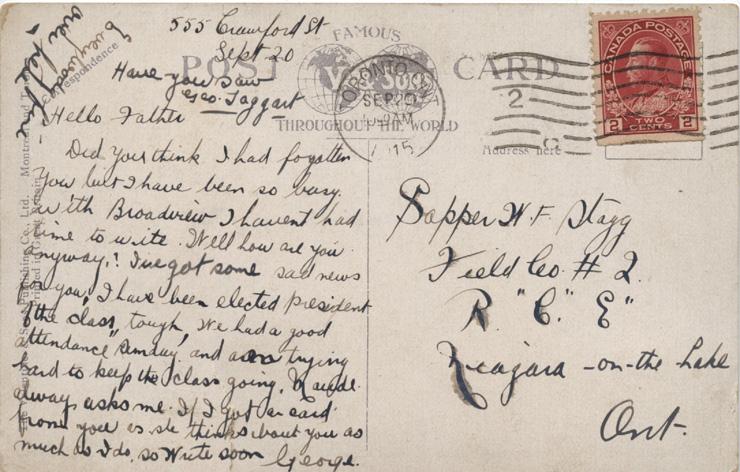 555 Crawford St
Sept 20
Have you saw
Geo. Taggart
Hello Father
Did you think I had forgotten
you but I have been so busy.
with Broadview I havent had
time to write. Well how are you
anyway,! I've got some sad news
for you, I have been elected President
of the class, "tough", We had a good
attendance Sunday, and are trying
hard to keep the class going, Maude
always asks me. If I got a card
from you as she thinks about you as
much as I do, so Write soon
George.
over
FAMOUS
POST CARD
THROUGHOUT THE WORLD
Correspondence
Address here
TORONTO, ONT
SEP 20
AM
1915
2
CANADA POSTAGE
2 TWO CENTS 2
Sapper W. F. Stagg
Field Co. # 2.
R. "C." E"
Niagara-on-the Lake
Ont.
Publishing Co., Ltd., Montreal and
Printed in Great Britain